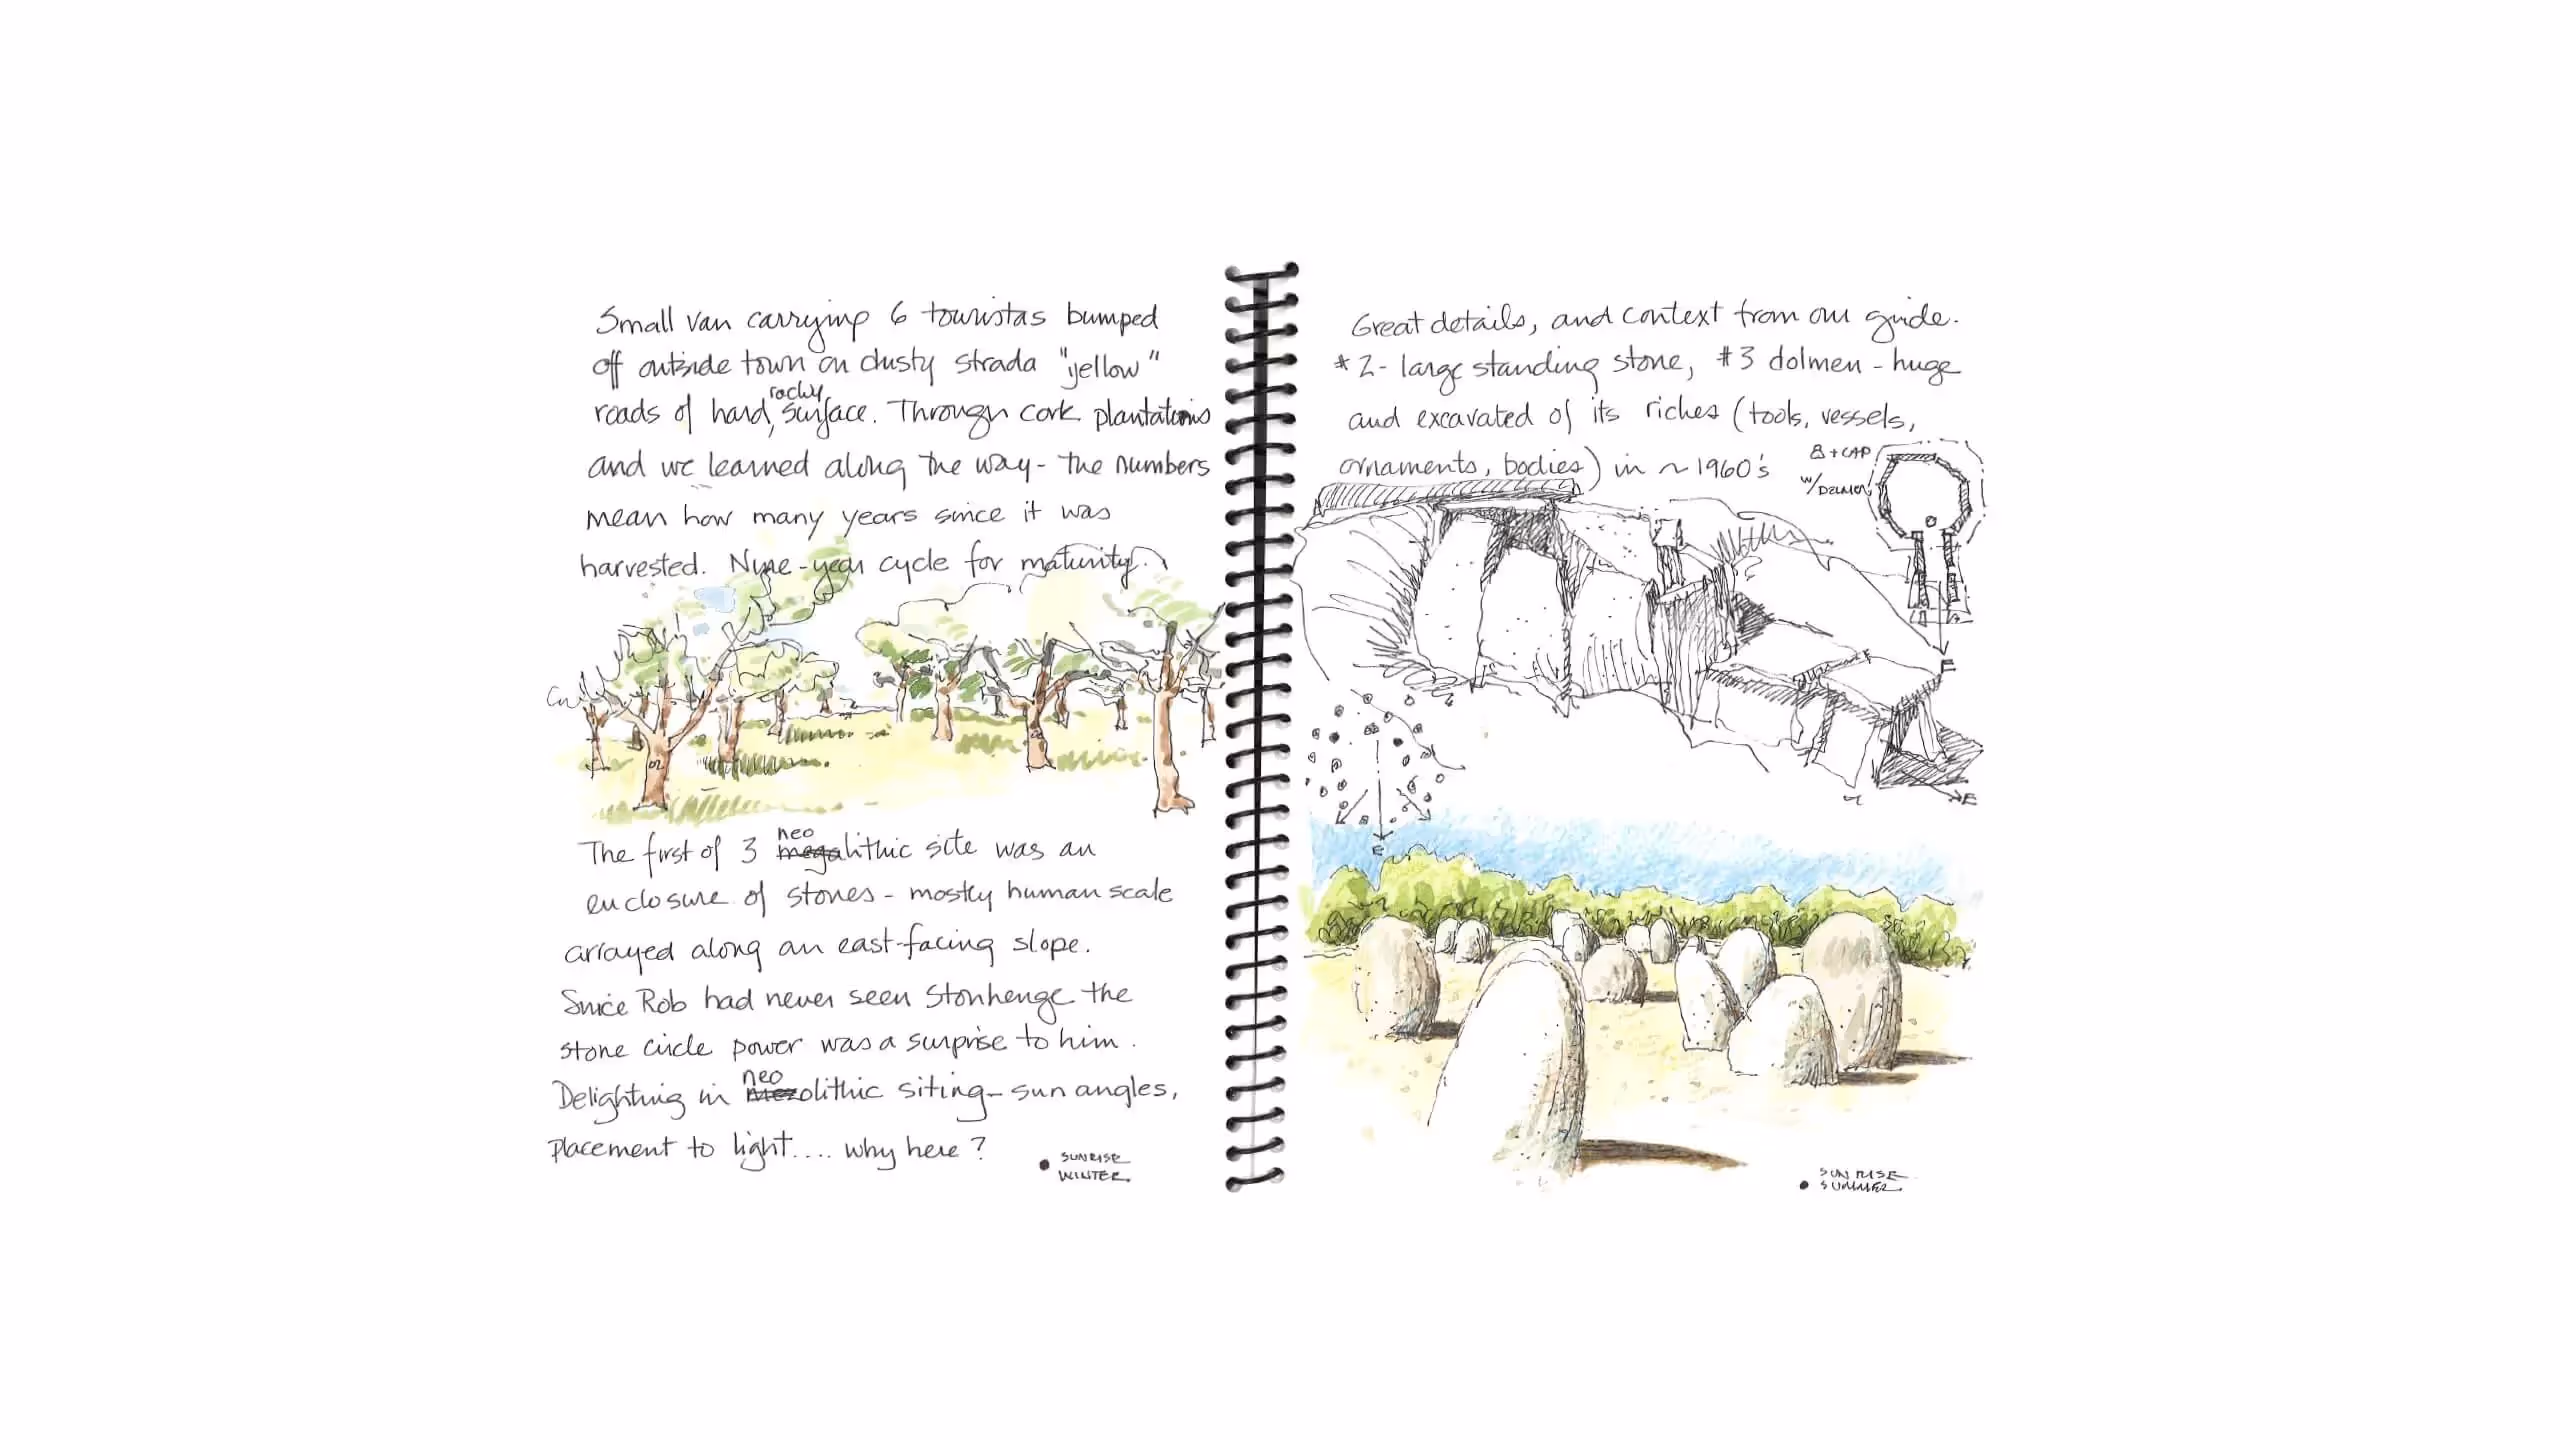 Small van carrying 6 touristas bumped
off outside town on dusty strada "yellow"
roads of hard, rocky surface. Through cork plantations
and we learned along the way - the numbers
mean how many years since it was
harvested. Nine-year cycle for maturity.
02
The first of 3 neo megalithic site was an
enclosure of stones - mostly human scale
arrayed along an east-facing slope.
Since Rob had never seen Stonhenge the
stone circle power was a surprise to him.
Delighting in neo mezolithic siting - sun angles,
placement to light.... why here?
SUNRISE
WINTER
Great details, and context from our guide.
#2 - large standing stone, #3 dolmen - huge
and excavated of its riches (tools, vessels,
ornaments, bodies) in ~ 1960's
8 + CAP
W/
E
E
E
SUNRISE
SUMMER